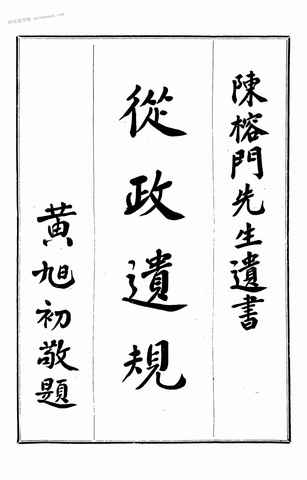 陳榕門先生遺書
從政遺規
黃旭初敬題